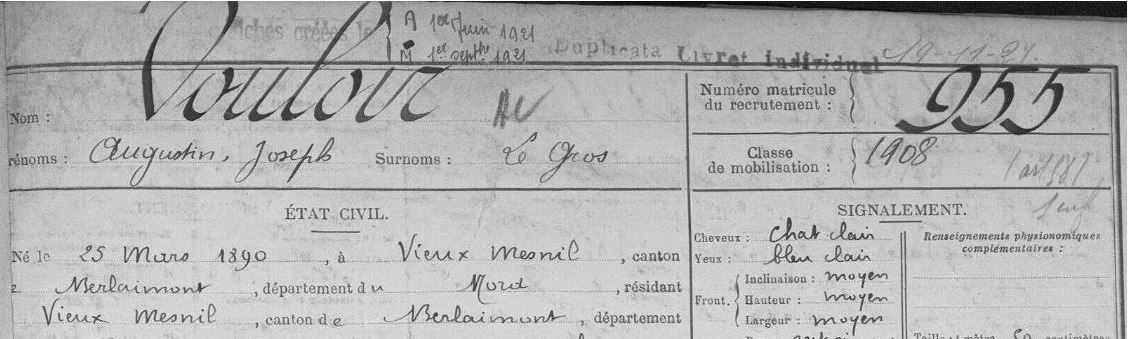 Fiches créées le
A 1er Juin 1921
M 1er septbre 1921
Duplicata Livret Individuel 19-11-27
Nom : Vouloir AV
rénoms : Augustin, Joseph Surnoms : Le Gros
Numéro matricule
du recrutement : 955
Classe
de mobilisation : 1908
ÉTAT CIVIL.
Né le 25 Mars 1890, à Vieux Mesnil, canton
e Berlaimont, département du Nord, résidant
Vieux Mesnil, canton de Berlaimont, département
SIGNALEMENT.
Cheveux : chat clair
Yeux : bleu clair
Front. Inclinaison : moyen
Hauteur : moyen
Largeur : moyen
Renseignements physionomiques
complémentaires :